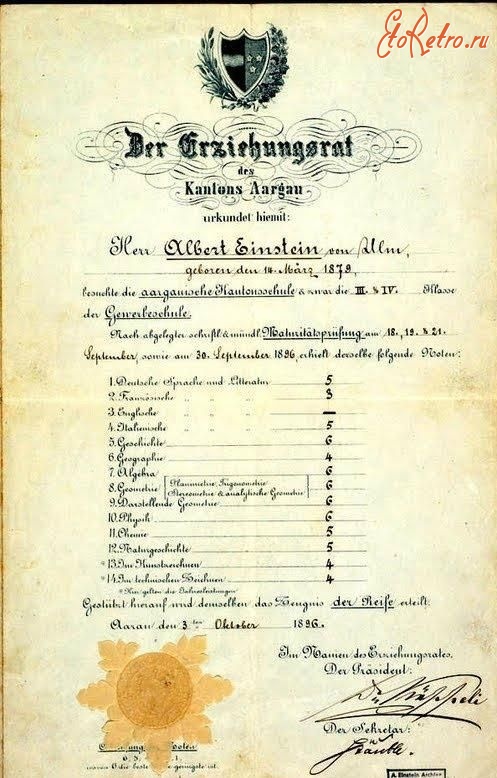 EtoRetro.ru
Der Erziehungsrat
des
Kantons Aargau
urkundet hiemit:
Herr Albert Einstein von Ulm,
geboren den 14. März 1879,
besuchte die aargauische Kantonsschule & zwar die III. & IV. Klasse
der Gewerbeschule.
Nach abgelegter schriftl. & mündl. Maturitätsprüfung am 18., 19. & 21.
September, sowie am 30. September 1896, erhielt derselbe folgende Noten:
1. Deutsche Sprache und Litteratur 5
2. Französische " " " 3
3. Englische " " " —
4. Italienische " " " 5
5. Geschichte 6
6. Geographie 4
7. Algebra 6
8. Geometrie (Planimetrie, Trigonometrie, Stereometrie & analytische Geometrie) 6
9. Darstellende Geometrie 6
10. Physik 6
11. Chemie 5
12. Naturgeschichte 5
* 13. Im Kunstzeichnen 4
* 14. Im technischen Zeichnen 4
* Hier gelten die Jahresleistungen.
Gestützt hierauf wird demselben das Zeugnis der Reife erteilt.
Aarau den 3ten Oktober 1896.
Im Namen des Erziehungsrates,
Der Präsident:
Der Sekretär:
Noten
6. 5. 1.
wovon 6 die beste geringste ist.
A. Einstein Archive